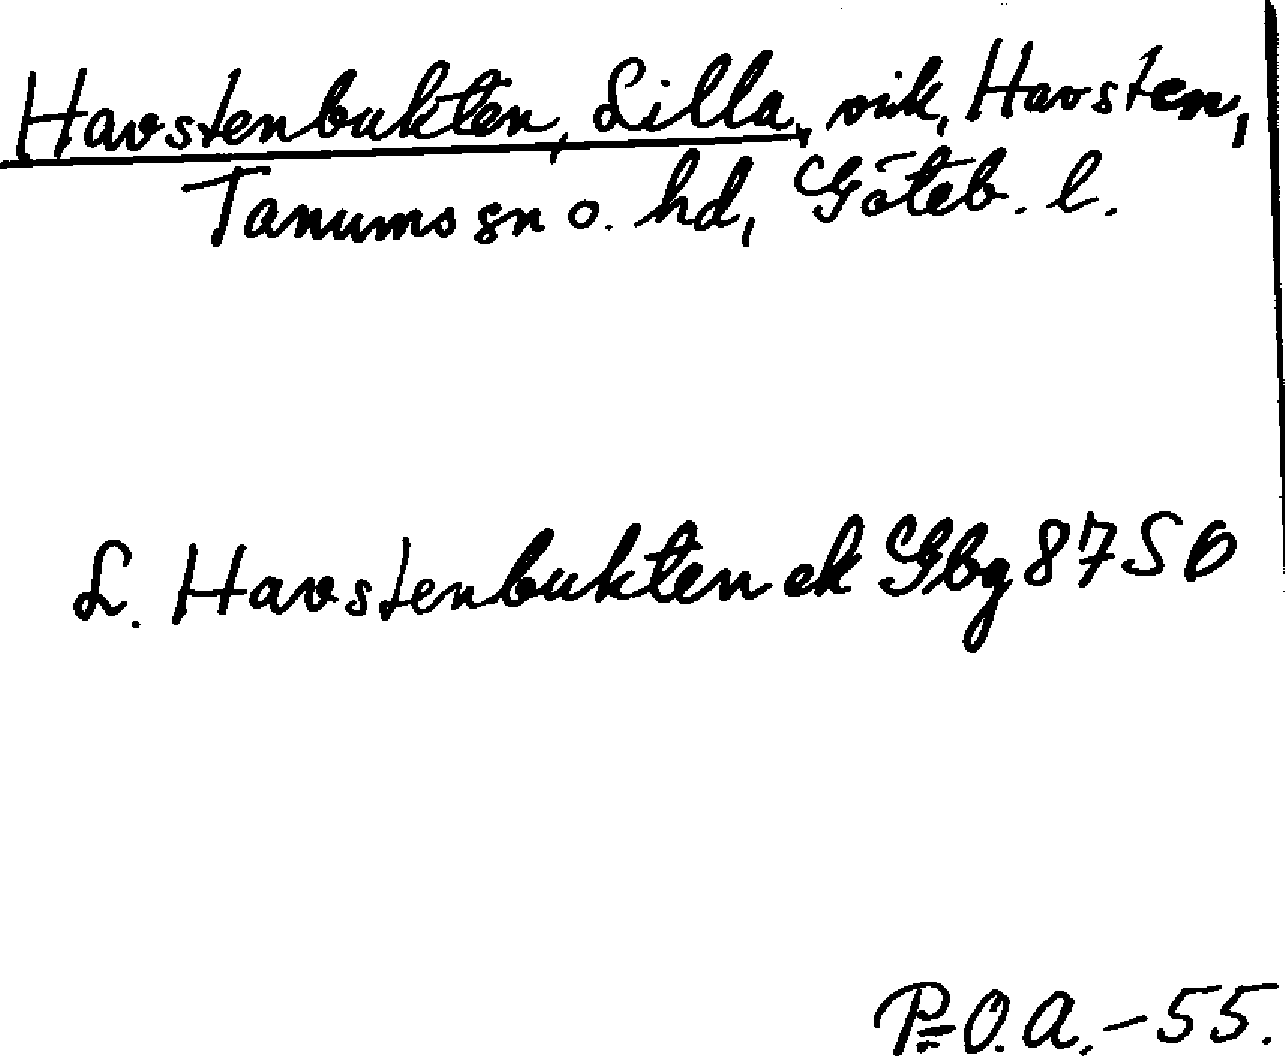 Havstenbukten, Lilla, vik, Havsten,
Tanums sn o. hd, Göteb. l.
L. Havstenbukten ek Gbg 87SO
P=O.A.-55.